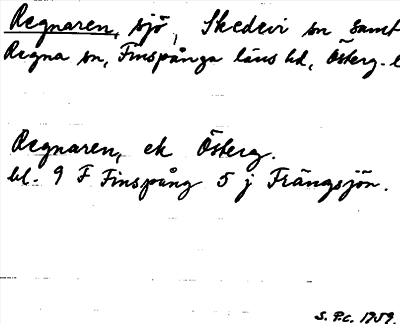 Regnaren, sjö, Skedevi sn samt
Regna sn, Finspånga läns hd, Österg. l
Regnaren, ek Österg.
bl. 9 F Finspång 5 j Trängsjön.
S. P.c. 1959.